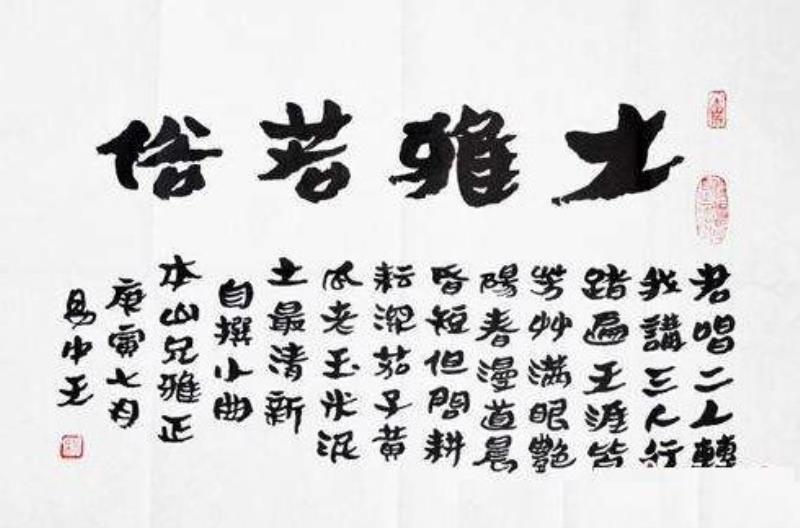 大雅若俗
君唱二人轉
我講三人行
踏遍天涯皆
芳艸滿眼艷
陽春漫道晨
昏短但問耕
耘深茄子黃
瓜老玉米泥
土最清新
自撰小曲
本山兄雅正
庚寅七月
易中天